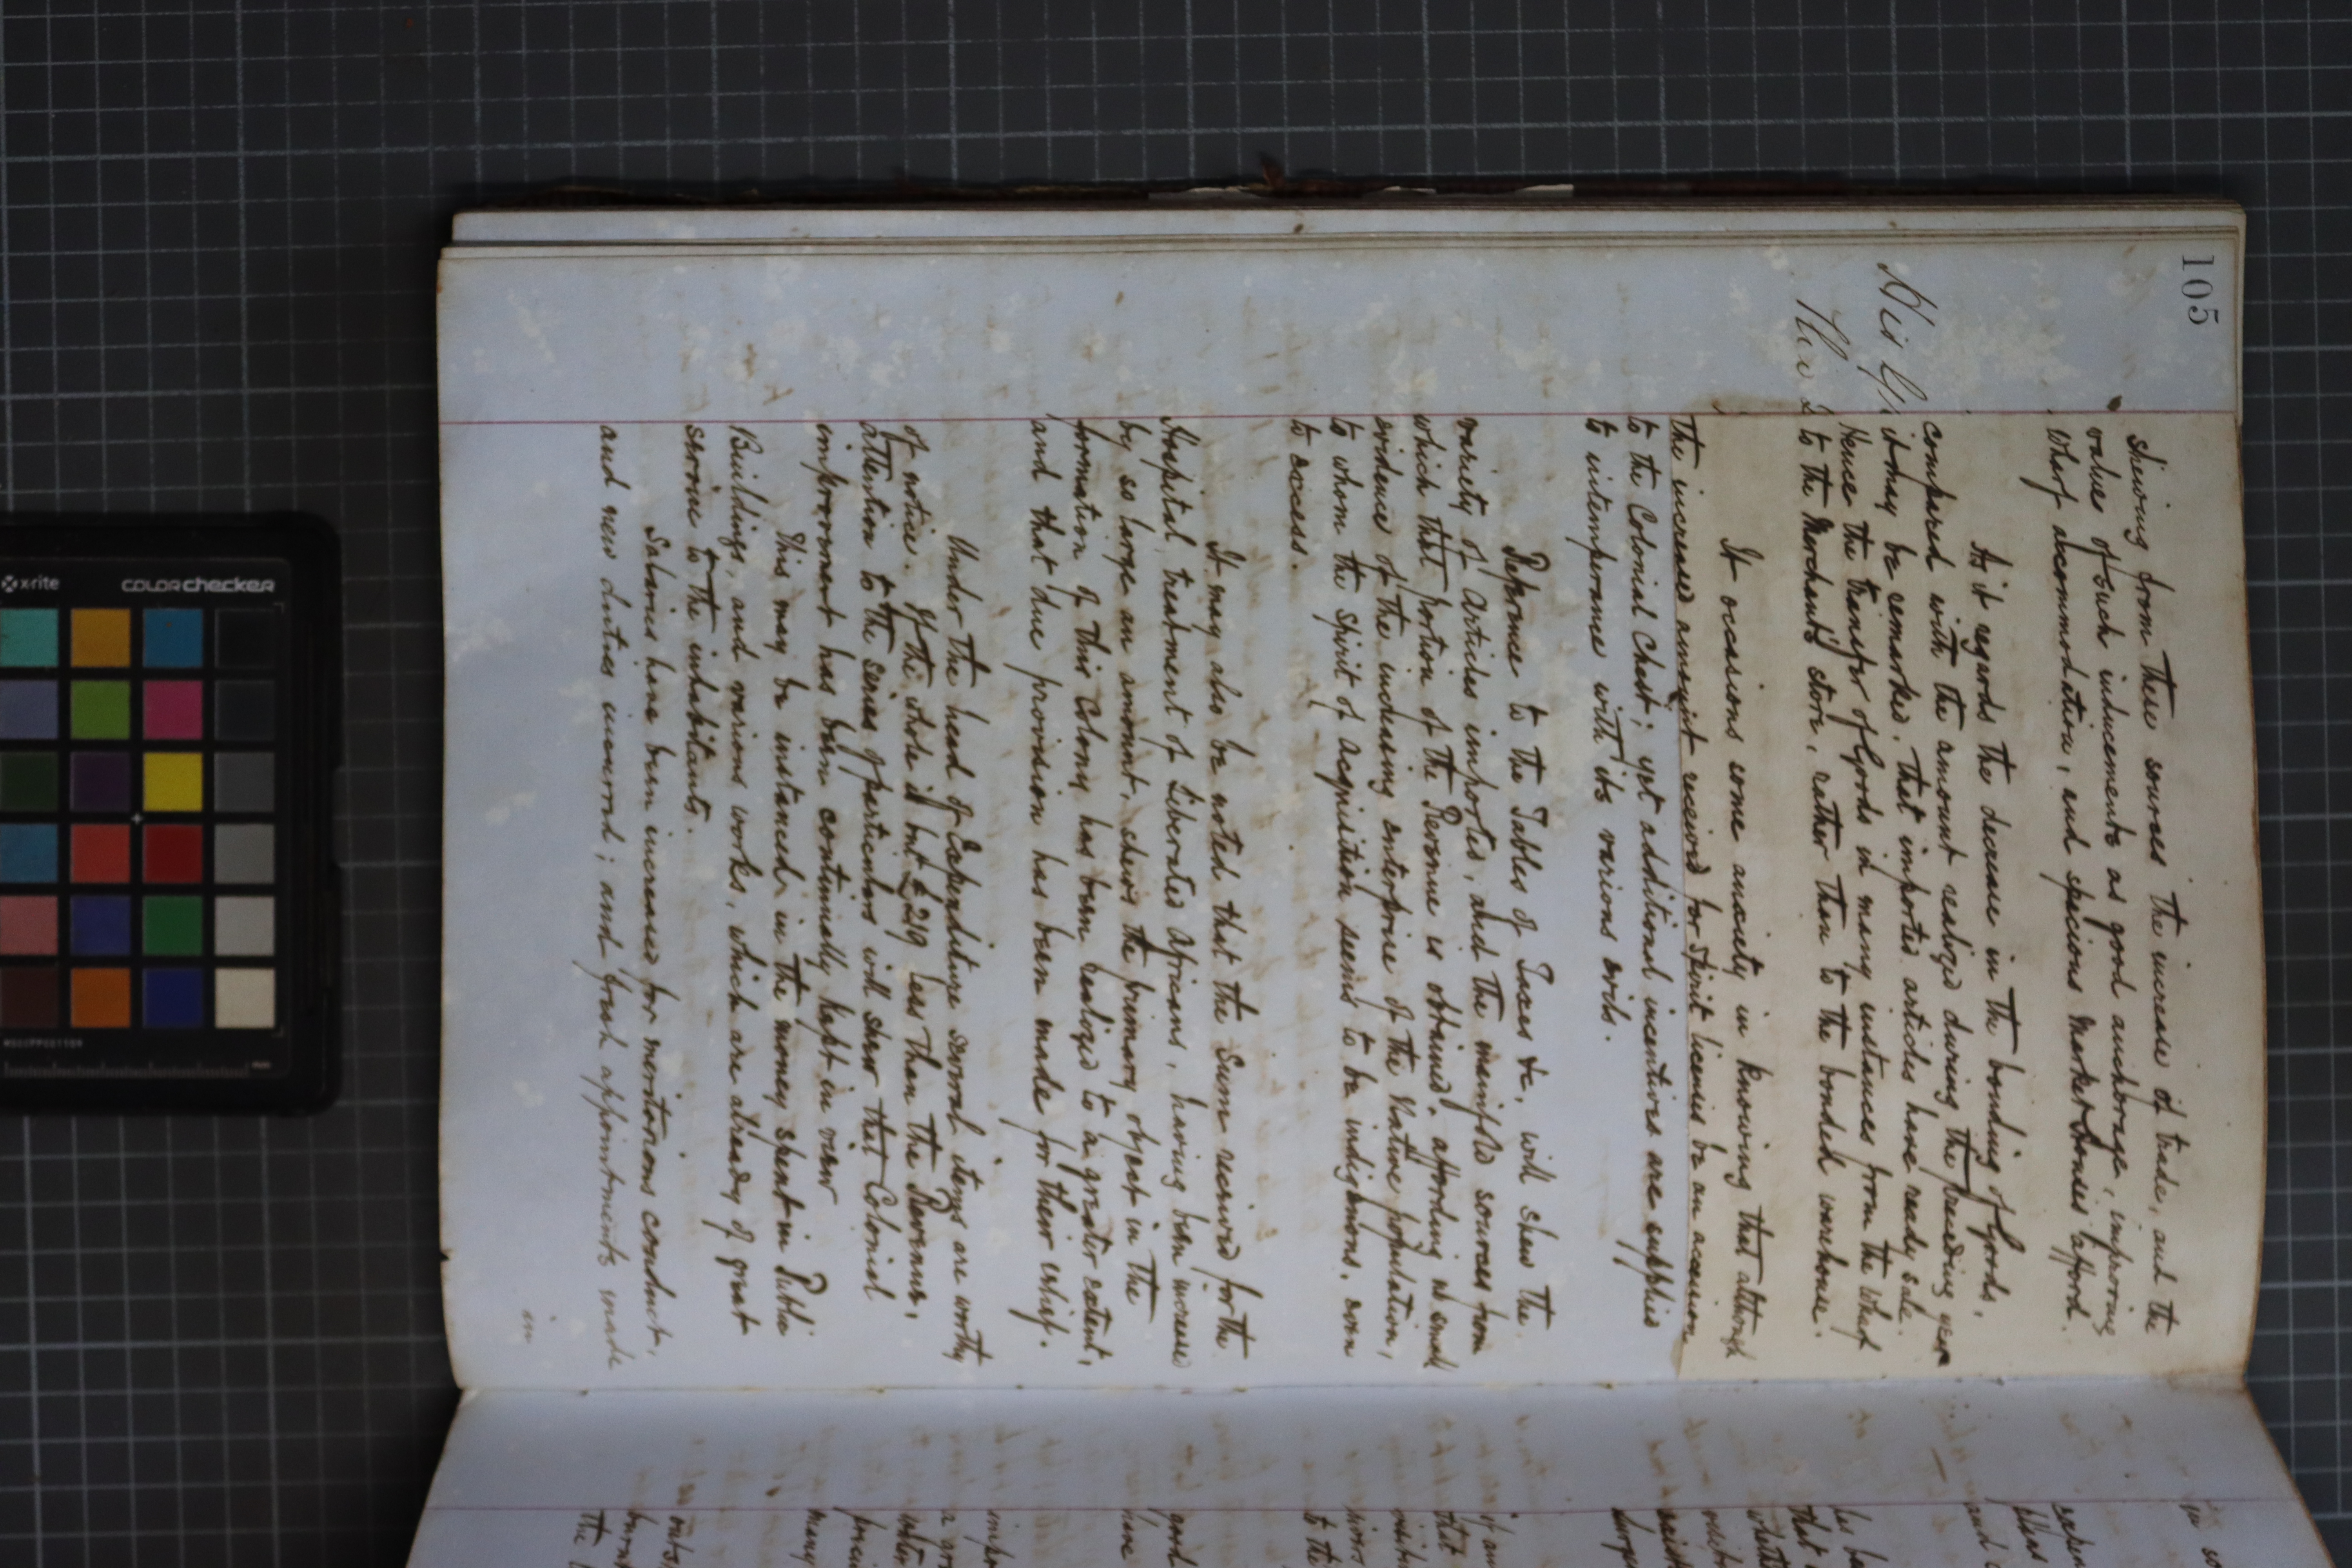 105
shewing from these sources the increase of trade, and the
value of such inducements as good anchorage, improving
Wharf accommodation, and specious Market Houses afford.
As it regards the decrease in the bonding of Goods,
compared with the amount realized during the preceding year
it may be remarked, that imported articles have ready sale.
Hence the transfer of Goods in many instances from the Wharf
to the Merchant's store, rather than to the bonded warehouse.
His
It occasions some anxiety in knowing that although
the increased amount received for Spirit licenses be an accession
to the Colonial Chest; yet additional incentives are supplied
to intemperance with its various evils.
Reference to the Tables of Taxes &c, will shew the
variety of articles imported, and the manifold sources from
which that portion of the Revenue is obtained, affording no small
evidence of the increasing enterprise of the Native population,
to whom the spirit of acquisition seems to be indigenous, even
to excess.
It may also be noted that the Sum received for the
Hospital treatment of Liberated Africans, having been increased
by so large an amount, shews the primary object in the
formation of this Colony has been realized to a greater extent,
and that due provision has been made for their relief.
Under the head of Expenditure several items are worthy
of notice. If the whole is but £219 less than the Revenue,
attention to the series of particulars will shew that Colonial
improvement has been continually kept in view
This may be instanced in the money spent in Public
Buildings, and various works, which are already of great
service to the inhabitants.
Salaries have been increased for meritorious conduct,
and new duties incurred; and fresh appointments made
in
x-rite
colorchecker